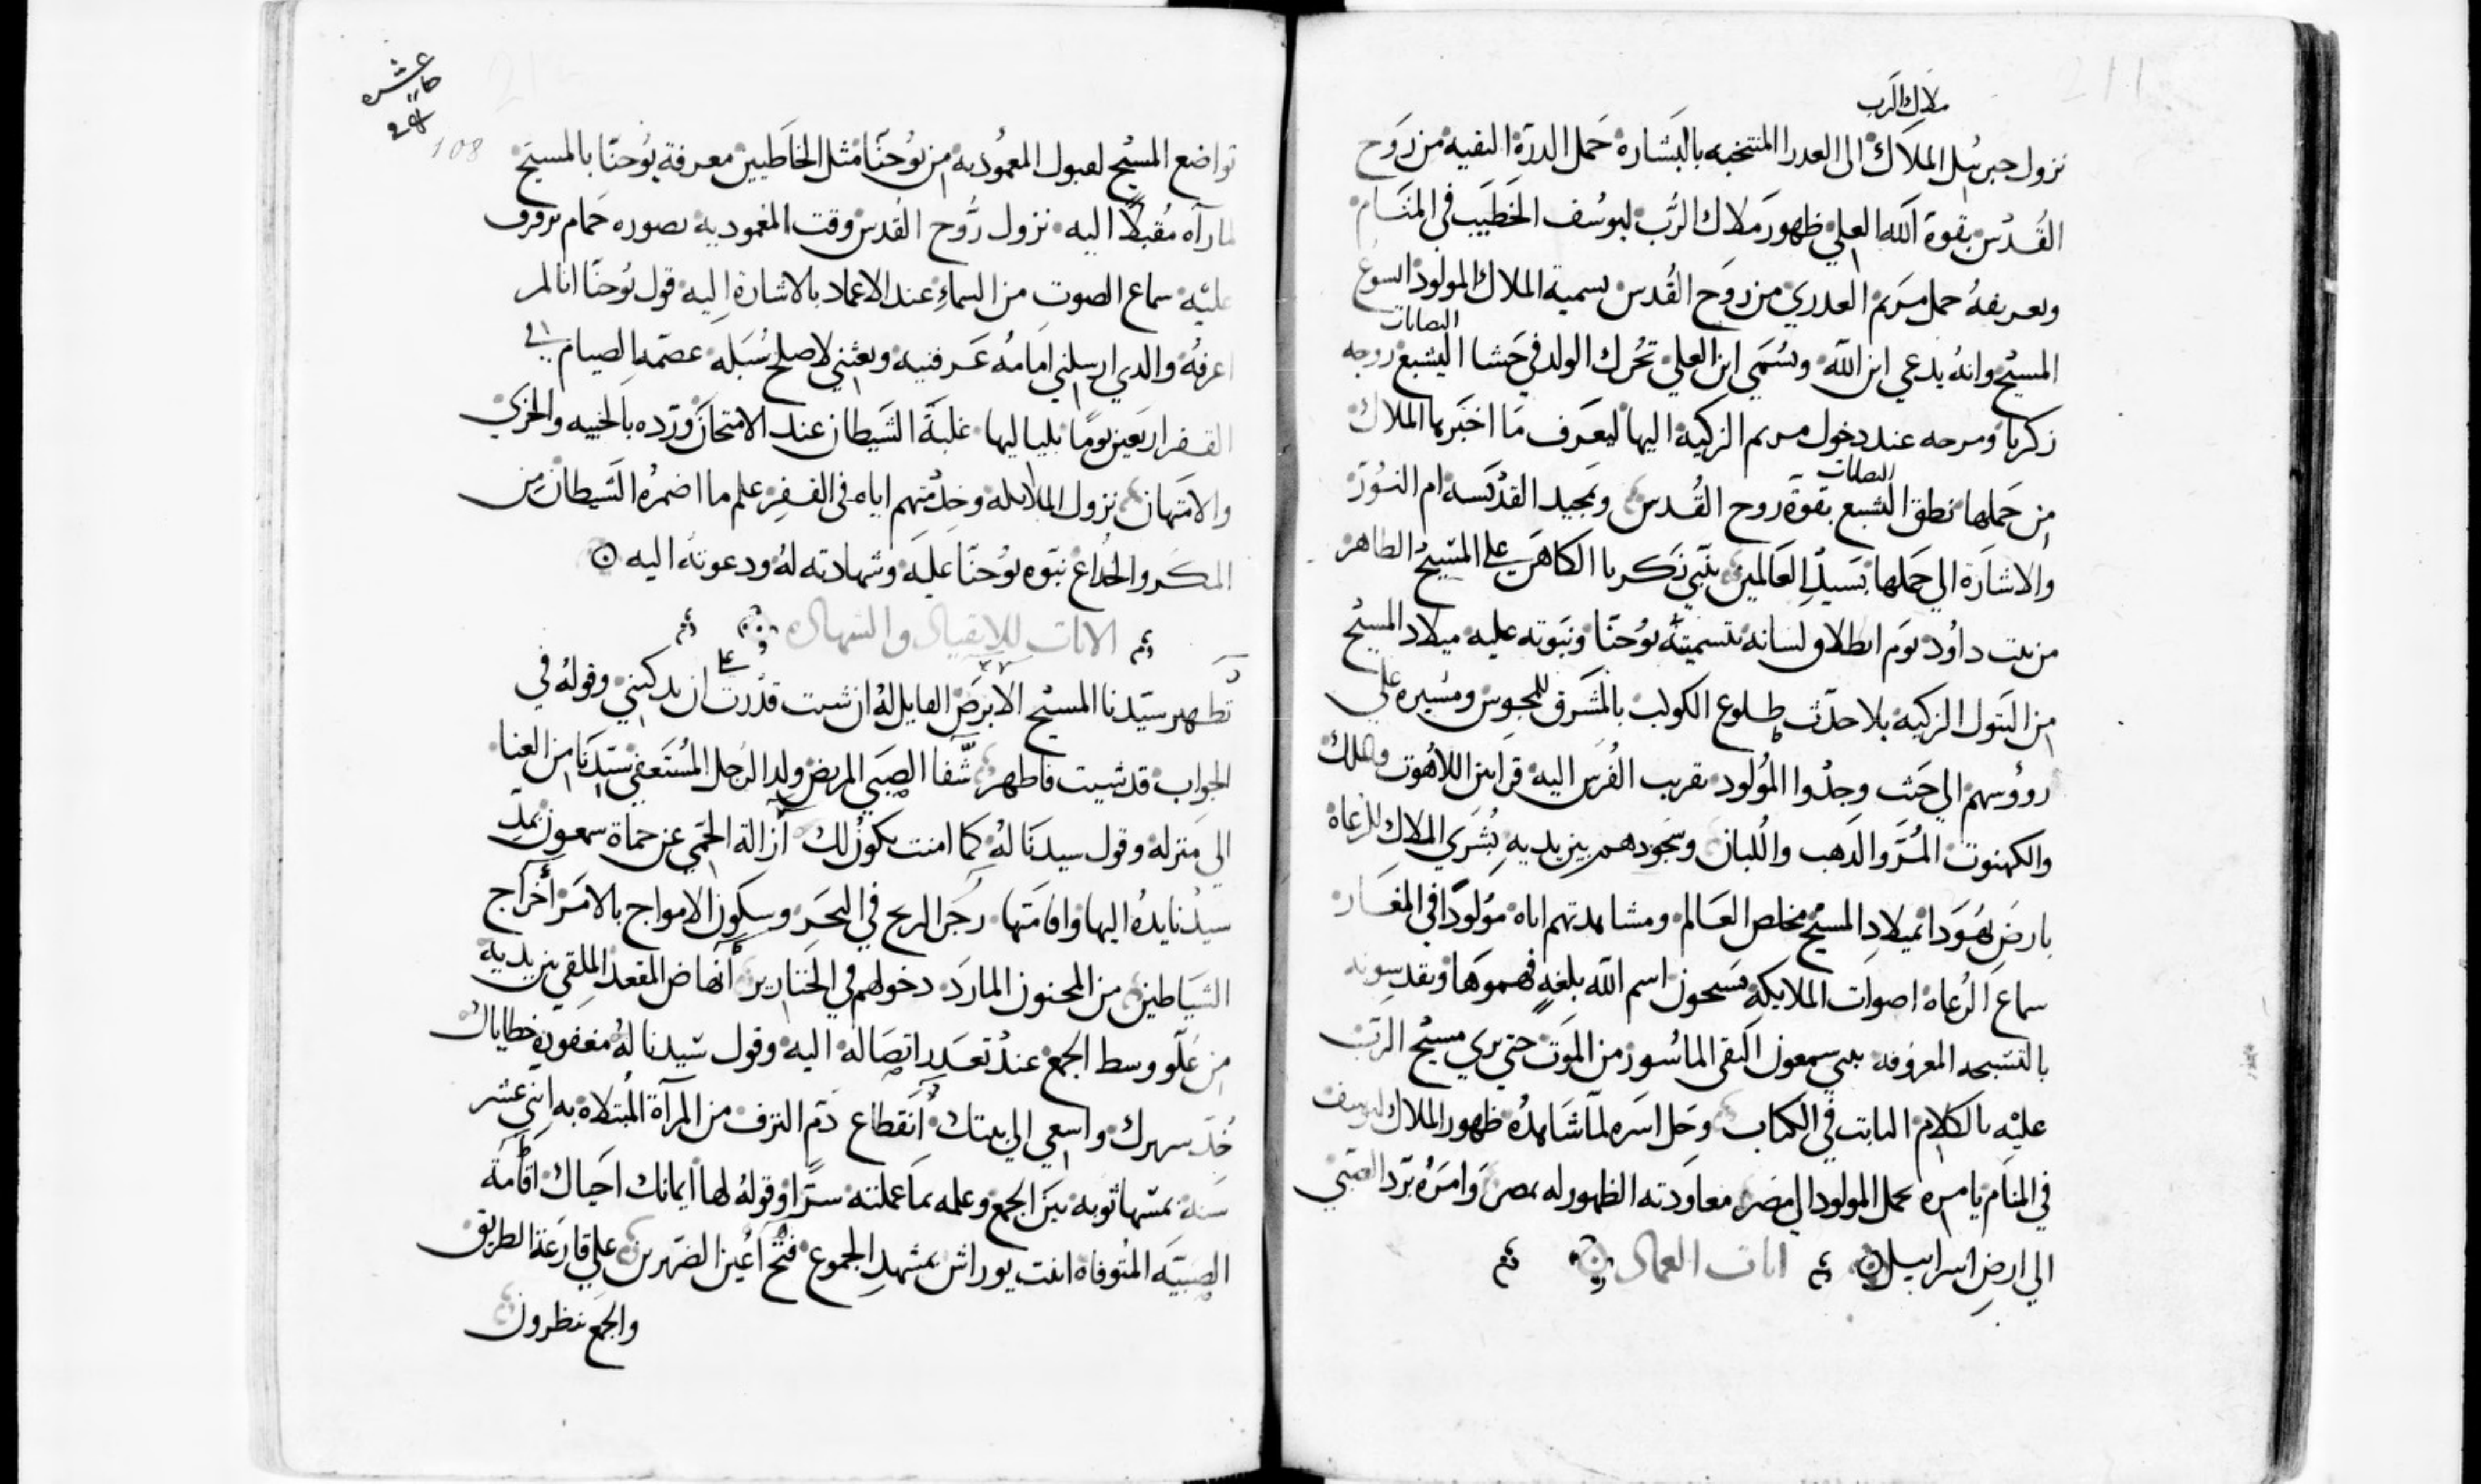 ملاك الرب
نزول جبرييل الملاك الى العدرا المنتخبه بالبشاره حمل الدرة النقيه من روح
القدس بقوة الله العلي ظهور ملاك الرب ليوسف الخطيب في المنام
وتعريفه حمل مريم العدري من روح القدس تسمية الملاك المولود ايسوع
المسيح وانه يدعي ابن الله ويسمي ابن العلي تحرك الولد في حشا اليشبع زوجه
زكريا ومرحه عند دخول مريم الزكية اليها ليعرف ما اخبرها الملاك
من حملها نطق اليشبع بقوة روح القدس وتمجيد القديسه ام النور
والاشارة الي حملها بسيد العالمين تنبي زكريا الكاهن علي المسيح الطاهر
من بيت داود يوم انطلاق لسانه بتسميته يوحنا ونبوته عليه ميلاد المسيح
من البتول الزكيه بلا حدث طلوع الكوكب بالمشرق للمجوس ومسيره علي
روؤسهم الي حيث وجدوا المولود تقريب الفرس اليه قرابين اللاهوت والملك
والكهنوت المر والدهب واللبان وسجودهم بين يديه بشري الملاك للرعاة
بارض يهودا بميلاد المسيح مخلص العالم ومشاهدتهم اياه مولودا في المغار
سماع الرعاه اصوات الملايكة يسبحون اسم الله بلغة فهموها ويقدسونه
بالتسبحه المعروفه سمعون التقي الماسور من الموت حتي يري مسيح الرب
عليه بالكلام الثابت في الكتاب وحل اسره لما شاهده ظهور الملاك ليوسف
في المنام يامره بحمل المولود الي مصر معاودته الظهور له بمصر وامره برد الصبي
الي ارض اسراييل ايات العماد
تواضع المسيح لقبول المعمودية من يوحنا مثل الخاطيين معرفة يوحنا بالمسيح
لما رآه مقبلا اليه نزول روح القدس وقت المعمودية بصوره حمام ترفرف
عليه سماع الصوت من السماء عند الاعماد بالاشارة اليه قول يوحنا انا لم
اعرفه والدي ارسلني امامه عرفنيه وبعثني لاصلح سبله الصيام في
القفر اربعين يوما بلياليها غلبة الشيطان عند الامتحان ورده بالخيبه والخزي
والامتهان نزول الملايكه وخدمتهم اياه في القفر علم ما اضمره الشيطان من
المكر والخداع نبوه يوحنا عليه وشهادته له ودعوته اليه
الايات للابقيال والشهاده
تطهير سيدنا المسيح الابرص القايل له ان شيت قدرت ان تدكيني وقوله في
الجواب قد شيت فاطهر شفا الصبي المريض ولد الرجل المستعفي سيدنا من العنا
الي منزله وقول سيدنا له كما امنت يكون لك ازالة الحمي عن حماة سمعون بمد
سيدنا يده اليها واقامتها زجر الريح في البحر وسكون الامواج بالامر اخراج
الشياطين من المجنون المارد دخولهم في الخنازير انهاض المقعد الملقي بين يديه
من علو وسط الجمع عند تعدر اتصاله اليه وقول سيدنا له مغفورة خطاياك
خد سريرك واسعي الي بيتك انقطاع دم النزف من المرآة المبتلاه به اثني عشر
سنة بمسها ثوبه بين الجمع وعلمه بما عملته سرا وقوله لها ايمانك احياك اقامة
الصبيه المتوفاه ابنت يوراش بمشهد الجموع فتح اعين الضريرين علي قارعة الطريق
والجمع ينظرون
108